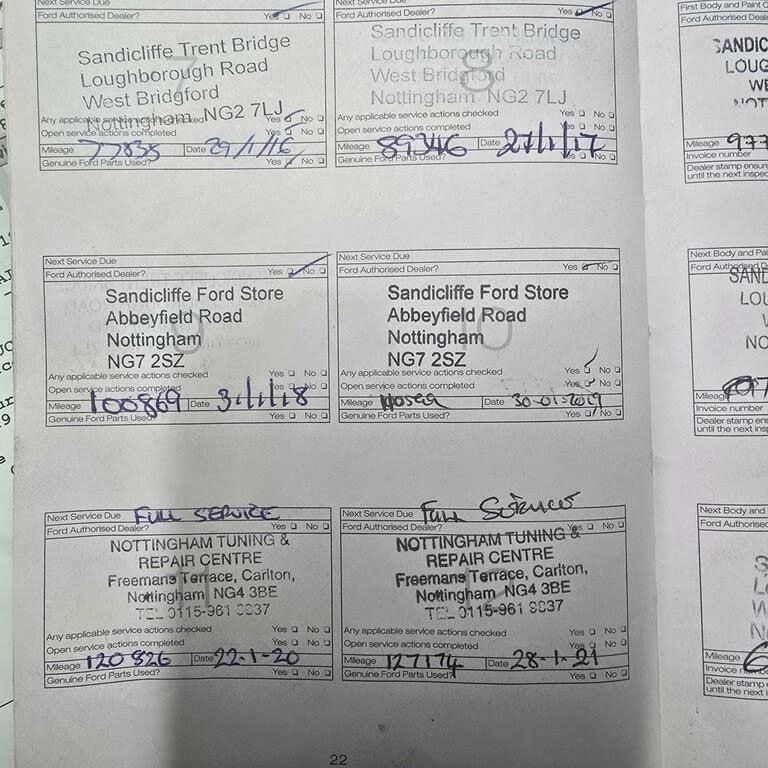 Next Service Due
Ford Authorised Dealer? Yes No
7
Sandicliffe Trent Bridge
Loughborough Road
West Bridgford
Nottingham NG2 7LJ
Any applicable service actions checked Yes No
Open service actions completed Yes No
Mileage 77835 Date 29/1/16
Genuine Ford Parts Used? Yes No
Next Service Due
Ford Authorised Dealer? Yes No
8
Sandicliffe Trent Bridge
Loughborough Road
West Bridgford
Nottingham NG2 7LJ
Any applicable service actions checked Yes No
Open service actions completed Yes No
Mileage 89346 Date 27/1/17
Genuine Ford Parts Used? Yes No
Next Service Due
Ford Authorised Dealer? Yes No
9
Sandicliffe Ford Store
Abbeyfield Road
Nottingham
NG7 2SZ
Any applicable service actions checked Yes No
Open service actions completed Yes No
Mileage 100869 Date 31/1/18
Genuine Ford Parts Used? Yes No
Next Service Due
Ford Authorised Dealer? Yes No
10
Sandicliffe Ford Store
Abbeyfield Road
Nottingham
NG7 2SZ
Any applicable service actions checked Yes No
Open service actions completed Yes No
Mileage Date 30-01-2019
Genuine Ford Parts Used? Yes No
Next Service Due FULL SERVICE
Ford Authorised Dealer? Yes No
NOTTINGHAM TUNING &
REPAIR CENTRE
Freemans Terrace, Carlton,
Nottingham NG4 3BE
TEL 0115-961
Any applicable service actions checked Yes No
Open service actions completed Yes No
Mileage 120826 Date 22-1-20
Genuine Ford Parts Used? Yes No
Next Service Due Full
Ford Authorised Dealer? Yes No
NOTTINGHAM TUNING &
REPAIR CENTRE
Freemans Terrace, Carlton,
Nottingham NG4 3BE
TEL 0115-961
Any applicable service actions checked Yes No
Open service actions completed Yes No
Mileage 127174 Date 28-1-21
Genuine Ford Parts Used? Yes No
22
First Body and Paint C
Ford Authorised Deal
SANDIC
LOUG
WE
NOT
Mileage 977
Invoice number
Dealer stamp ensure
until the next inspec
Next Body and Pai
Ford Authorised D
SAND
LOU
NO
Mileage
Invoice number
Dealer stamp ens
until the next insp
Next Body and
Ford Authorised
Mileage
Invoice
Dealer stamp
until the next i